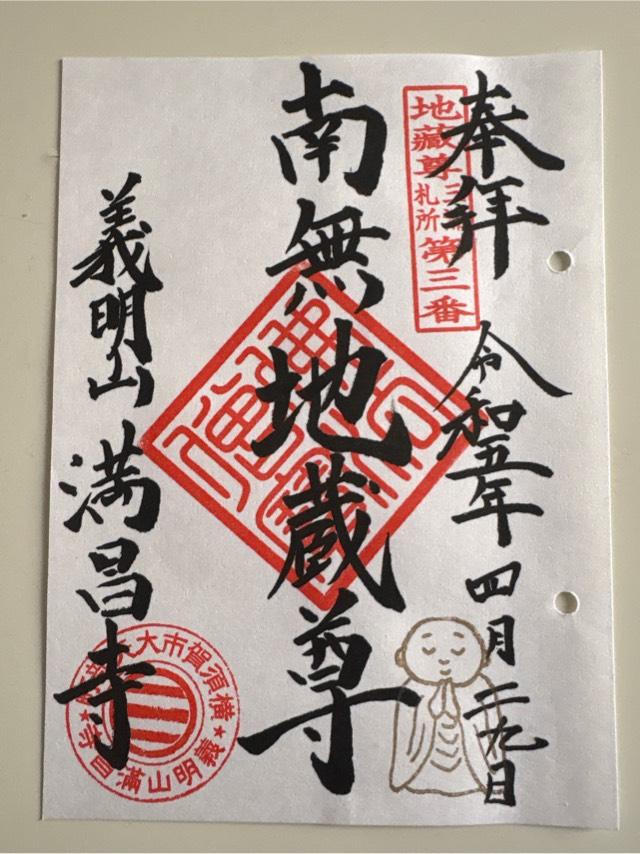 奉拝
地蔵尊
札所
第三番
令和五年四月二九日
南無地蔵尊
義明山満昌寺
横須賀市大
義明山満昌寺